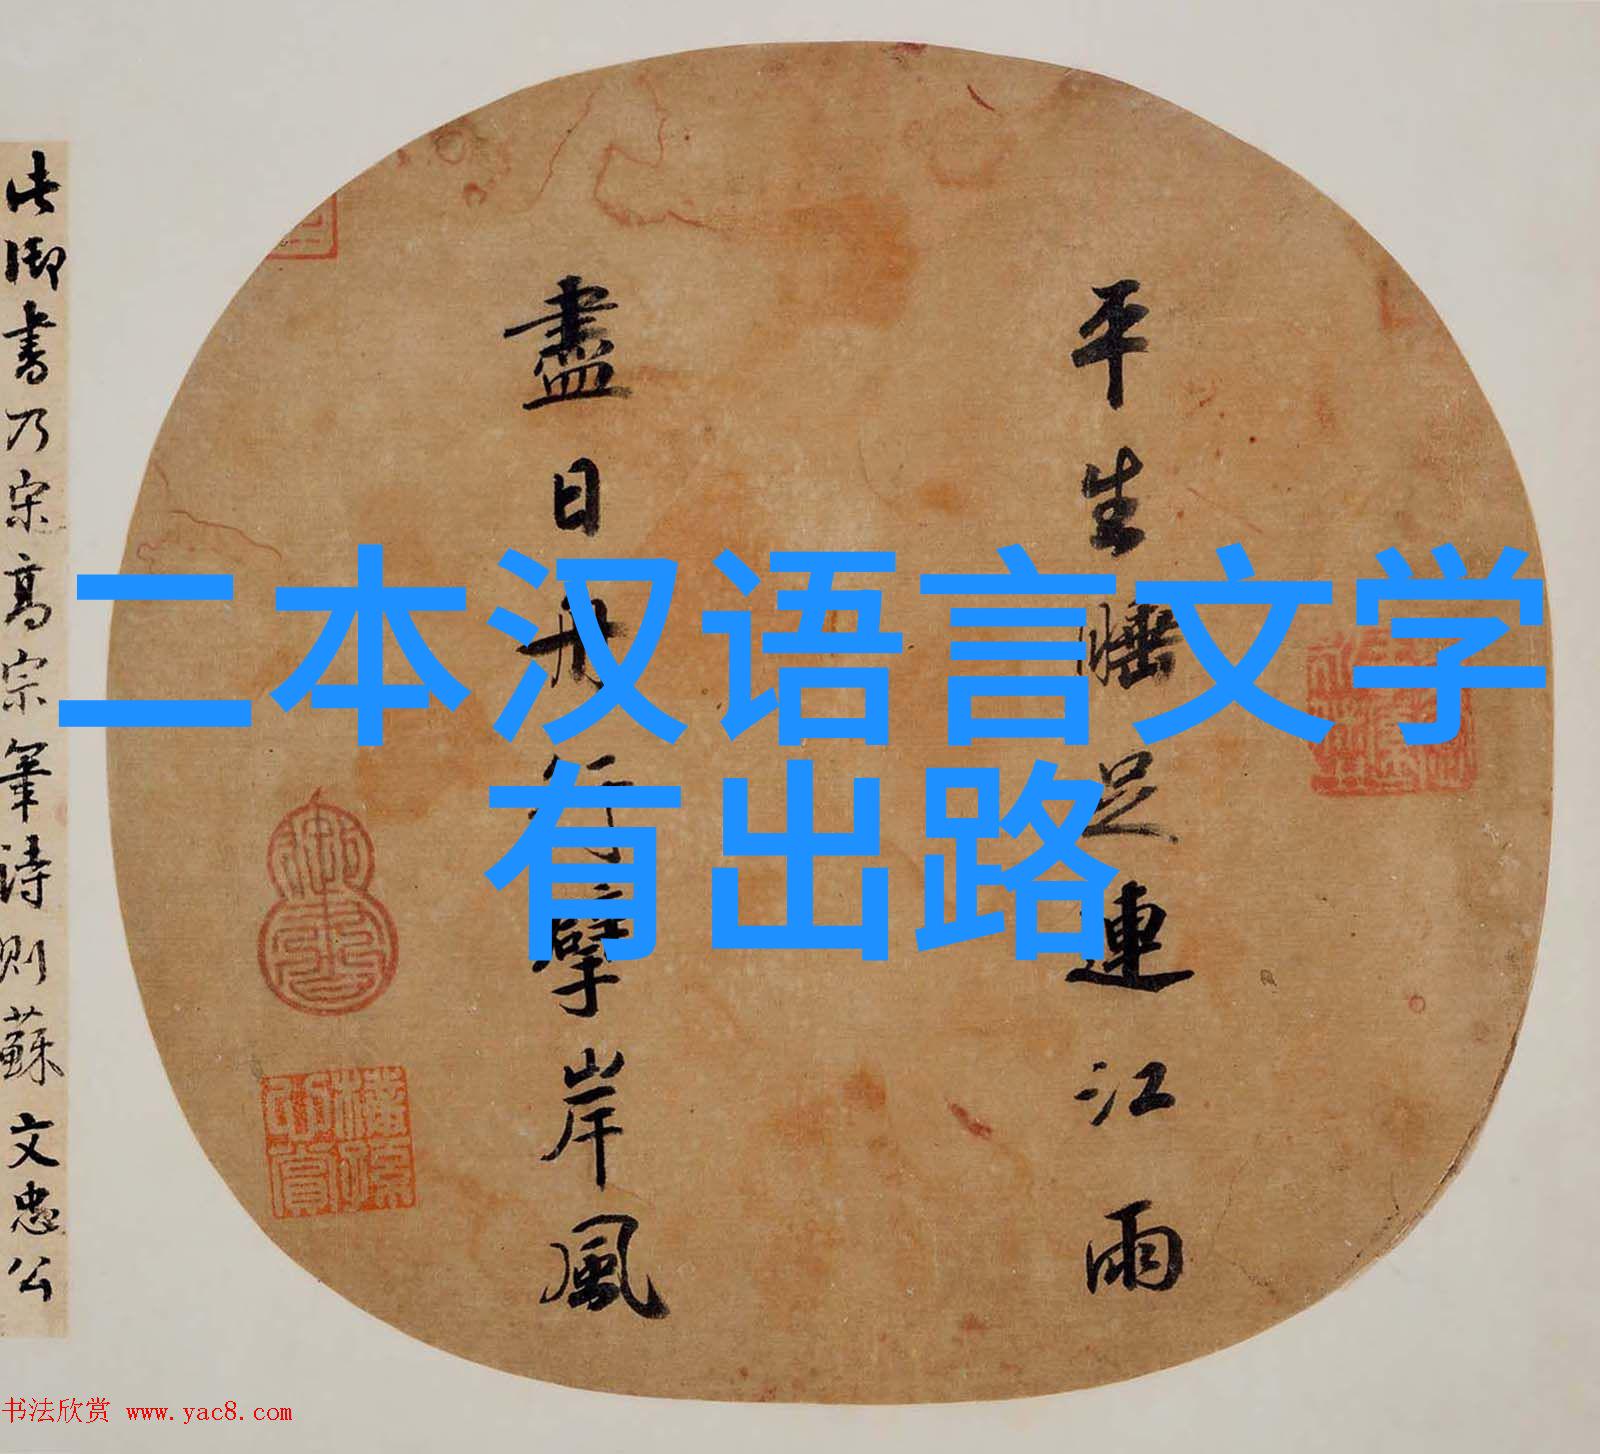 二本汉语言文学
有出路
平生睡足連江雨
盡日舟行擘岸風
此御書乃宋高宗筆詩則蘇文忠公
书法欣赏 www.yac8.com